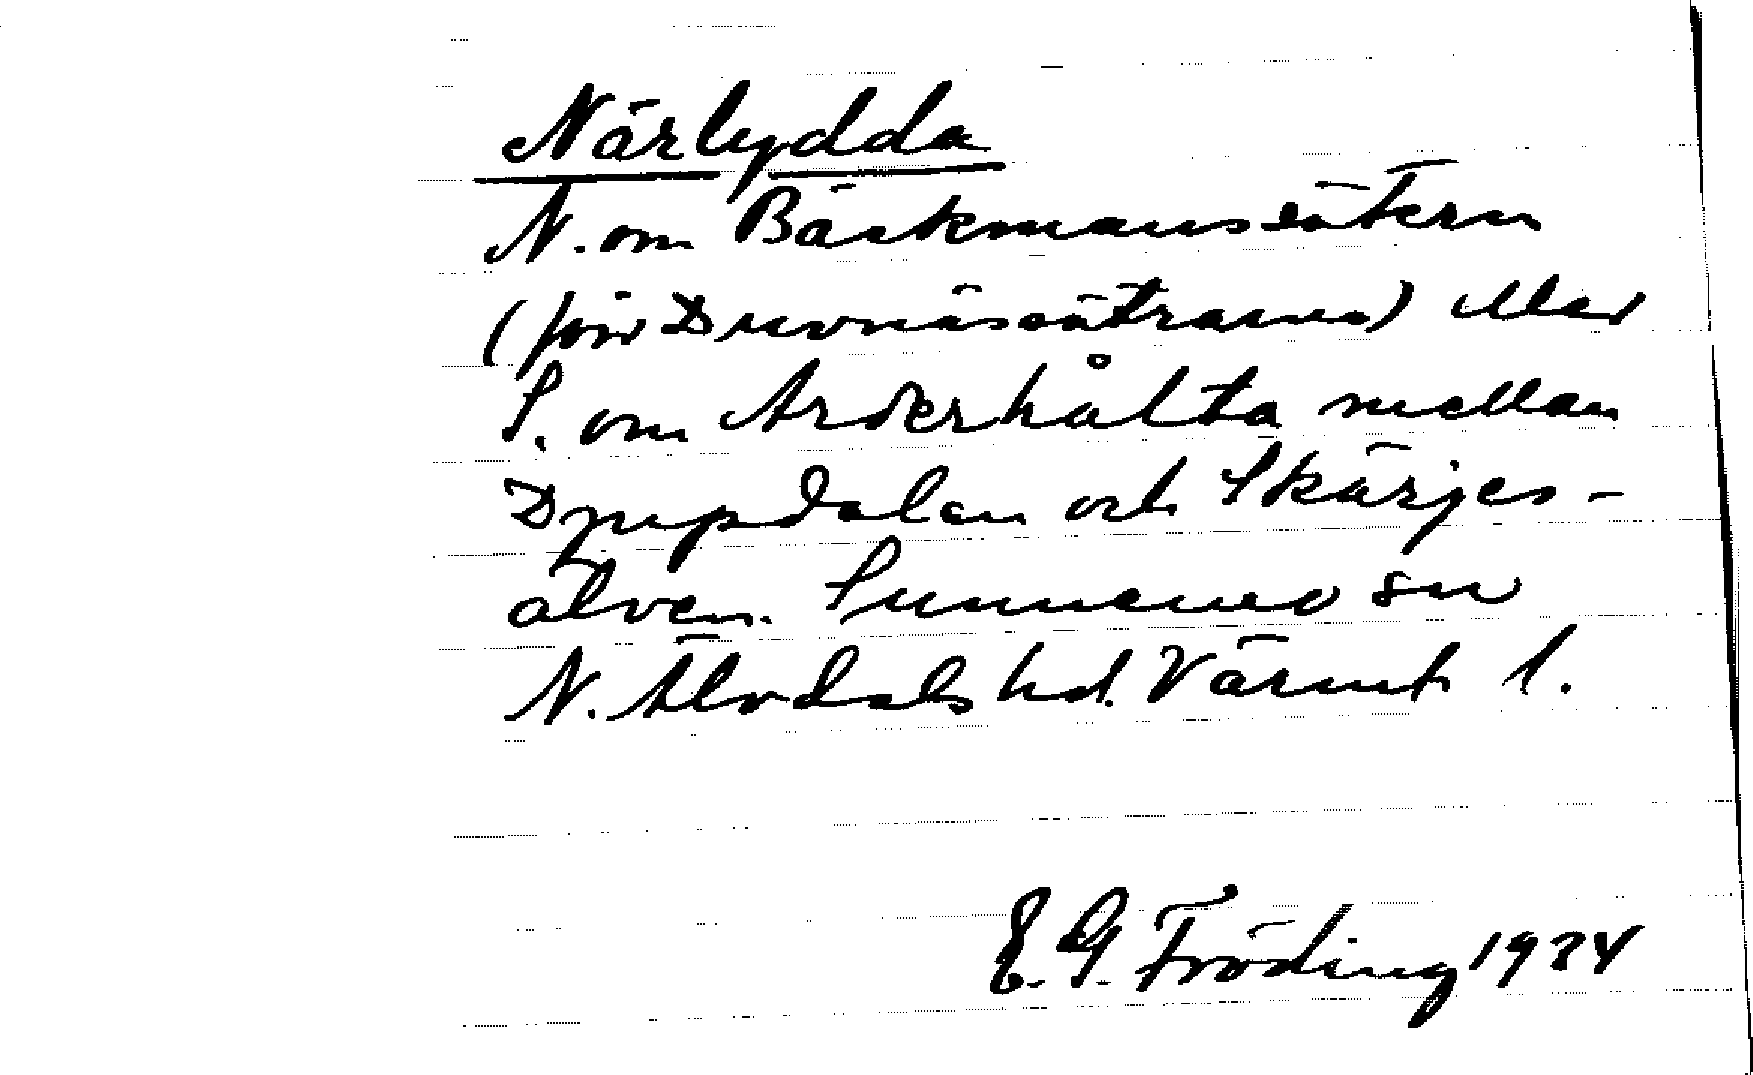 Närlydda
N. om Bäckmanssätern
(förr Duvnässätrarna) eller
S. om Arderhålta mellan
Drypdalen och Skärjes-
älven. Sunnemo sn
N. Älvdals hd. Värml l.
E. G. Fröding 1934